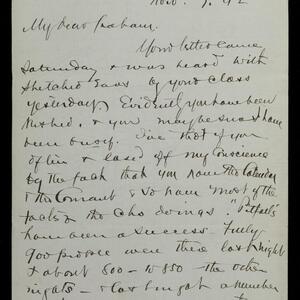 Nov. 9. 92
My dear Graham.
Your letter came
Saturday & was heard with
stretched ears by your class
yesterday. Evidently you have been
rushed, & you may be sure I have
been busy. I've thot of you
often & eased my conscience
by the fact that you have the Calendar
& the Cormant & so have most of the
facts in the chs doings. "
have been a success. Fully
900 people were there last night
& about 800 to 850 the other
nights - & last night a number